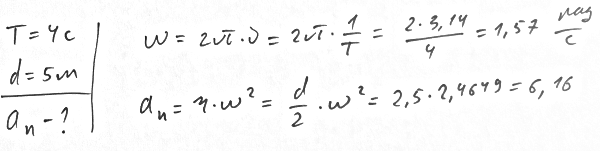 T = 4 с
d = 5 м
aₙ - ?
ω = 2π · ν = 2π · 1/T = 2 · 3,14 / 4 = 1,57 рад/с
aₙ = r · ω² = d/2 · ω² = 2,5 · 2,4649 = 6,16